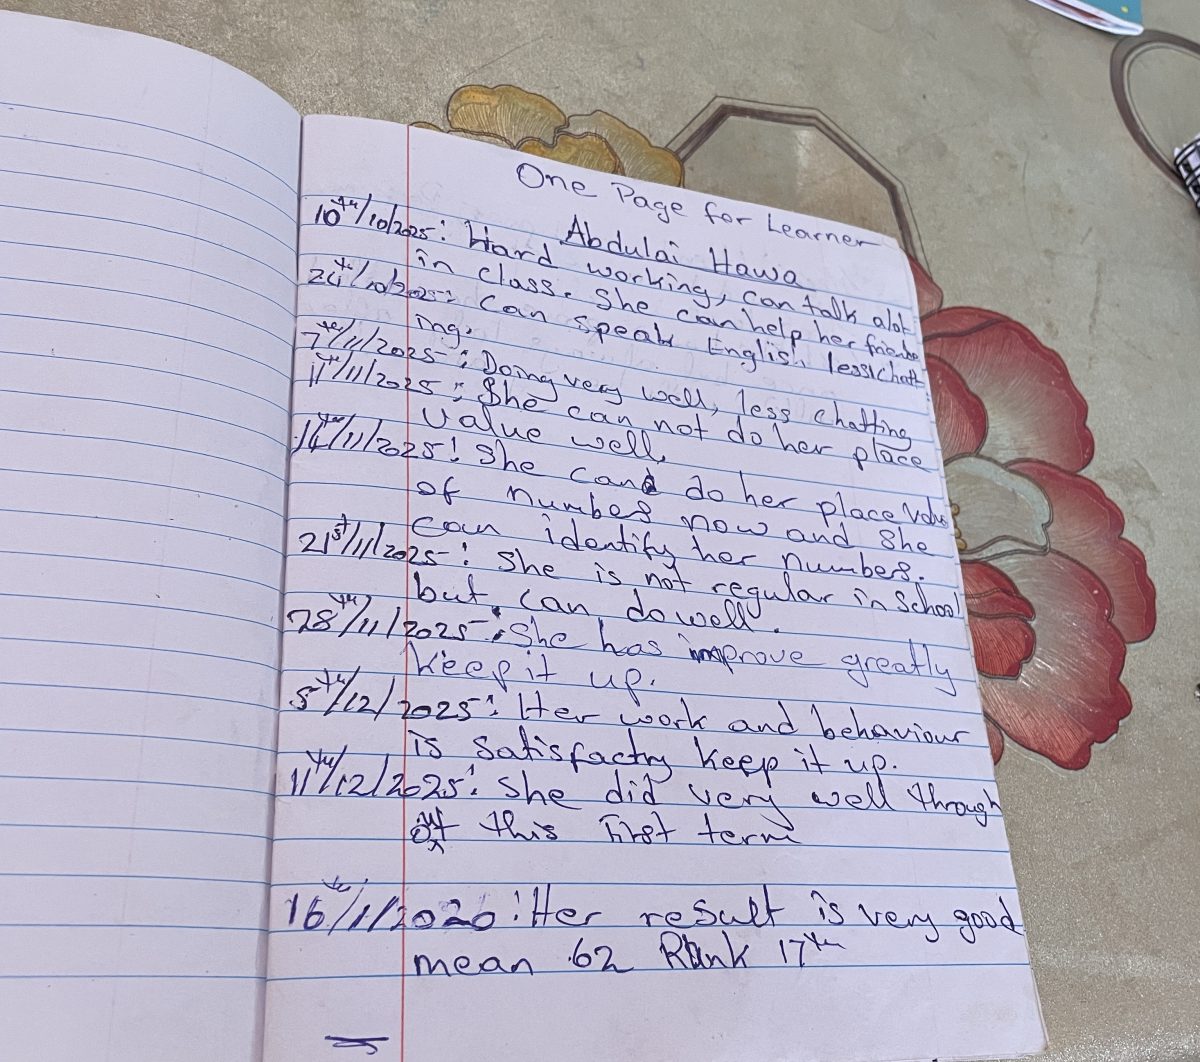 One Page for Learner
Abdulai Hawa
10th/10/2025: Hard working, can talk alot
in class. She can help her friends
24th/10/2025: Can speak English, less chatt
ing.
7th/11/2025: Doing very well, less chatting
11th/11/2025: She can not do her place
value well.
14th/11/2025: She can do her place value
of numbes now and she
can identify her numbers.
21st/11/2025: She is not regular in School
but can do well.
28th/11/2025: She has improve greatly
keep it up.
5th/12/2025: Her work and behaviour
is satisfactry keep it up.
11th/12/2025: She did very well through
out this First term
16th/1/2026: Her result is very good
mean 62 Rank 17th